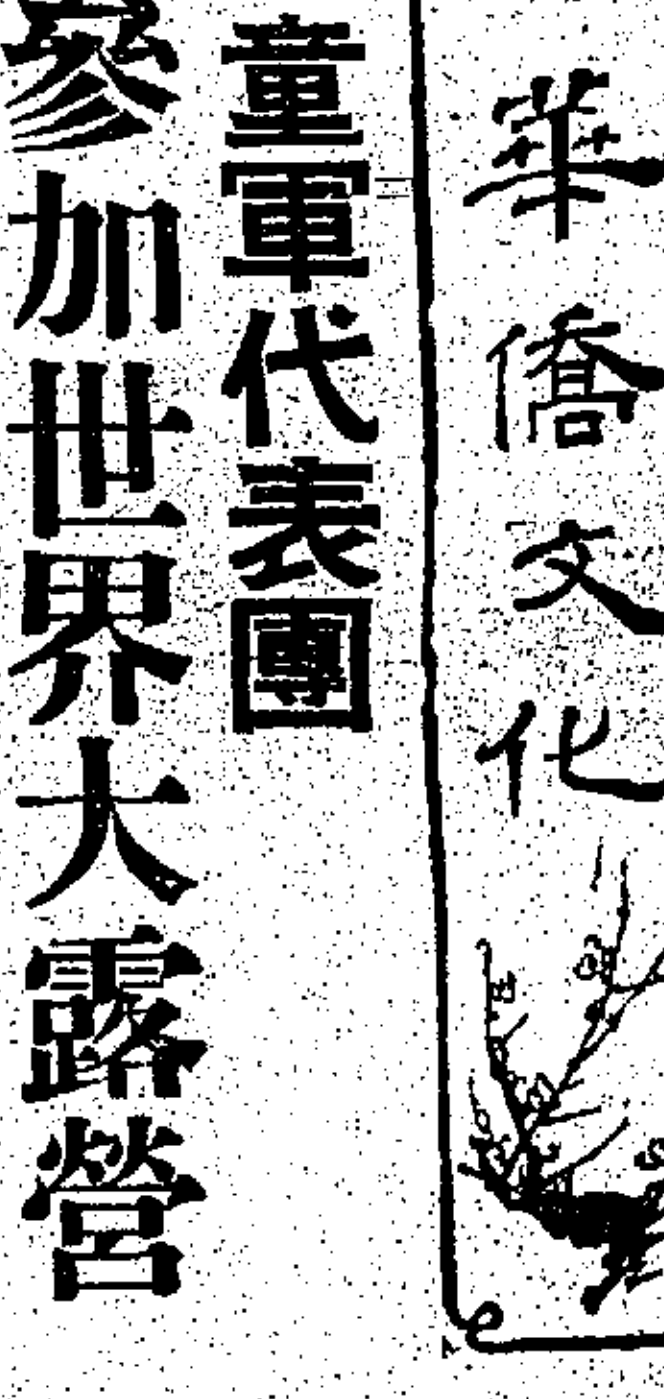 華僑文化
童軍代表團
參加世界大露營